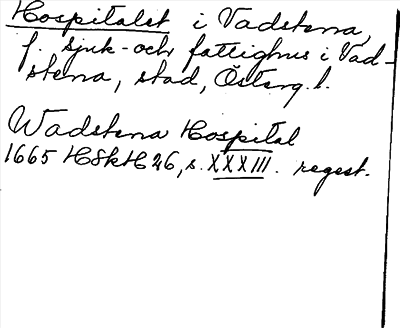 Hospitalet i Vadstena,
f. sjuk- och fattighus i Vad-
stena, stad, Österg. l.
Wadstena Hospital
1665 HSkH 26, s. XXXIII. regest.